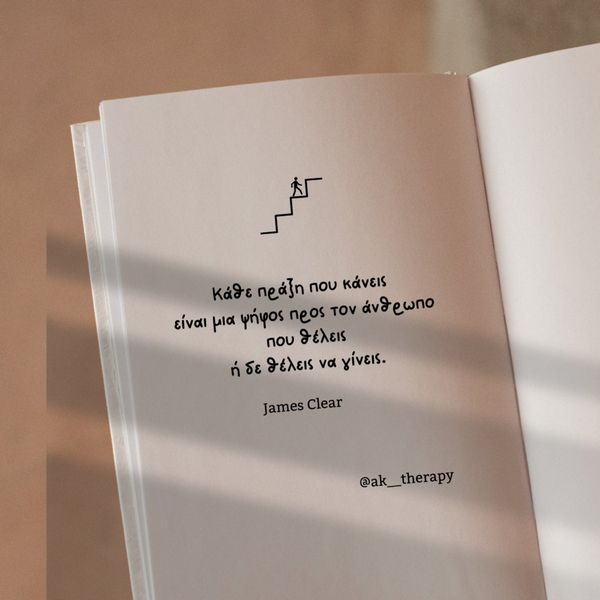 Κάθε πράξη που κάνεις
είναι μια ψήφος προς τον άνθρωπο
που θέλεις
ή δε θέλεις να γίνεις.
James Clear
@ak__therapy